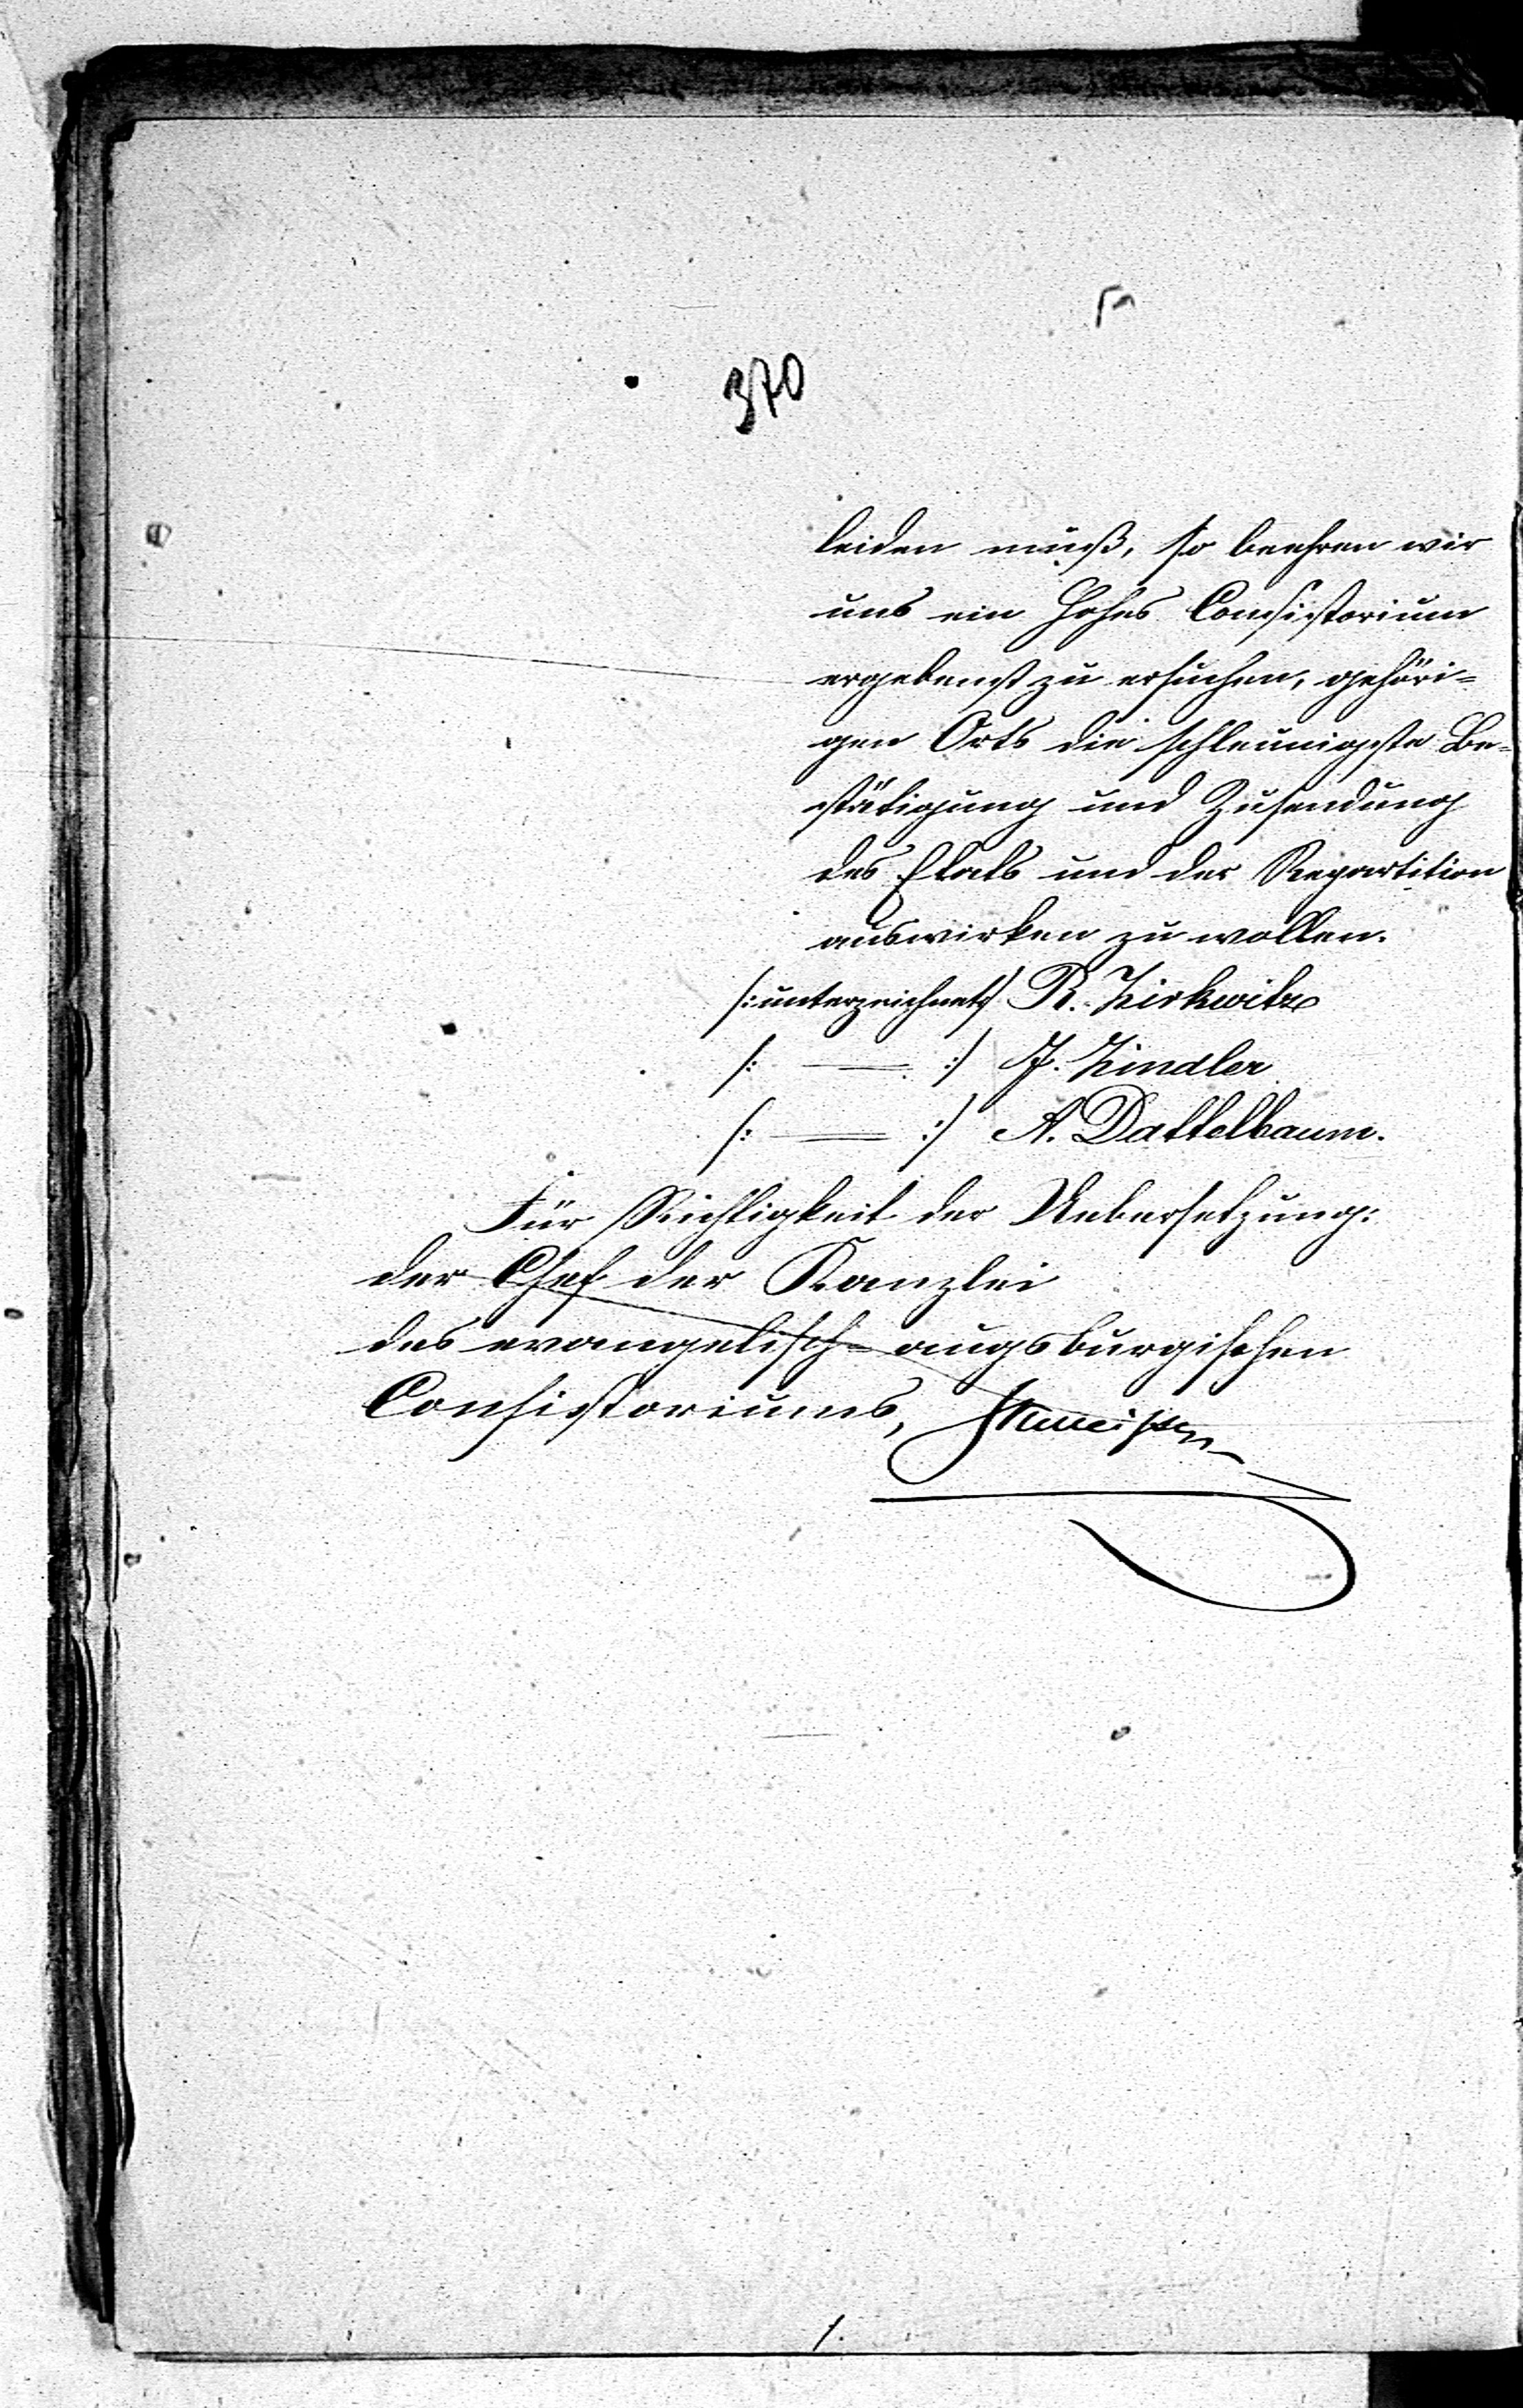 370
leiden muß, so beehren wir
uns ein Hohes Consistorium
ergebenst zu ersuchen, gehöri=
gen Orts die schleunigste Be=
stätigung und Zusendung
des Etats und der Repartition
auswirken zu wollen.
/:unterzeichnet:/ R. Zirkwitz
/: — :/ J. Zindler
/: — :/ A. Dattelbaum.
Für Richtigkeit der Uebersetzung:
der Chef der Kanzlei
des evangelisch=augsburgischen
Consistoriums,